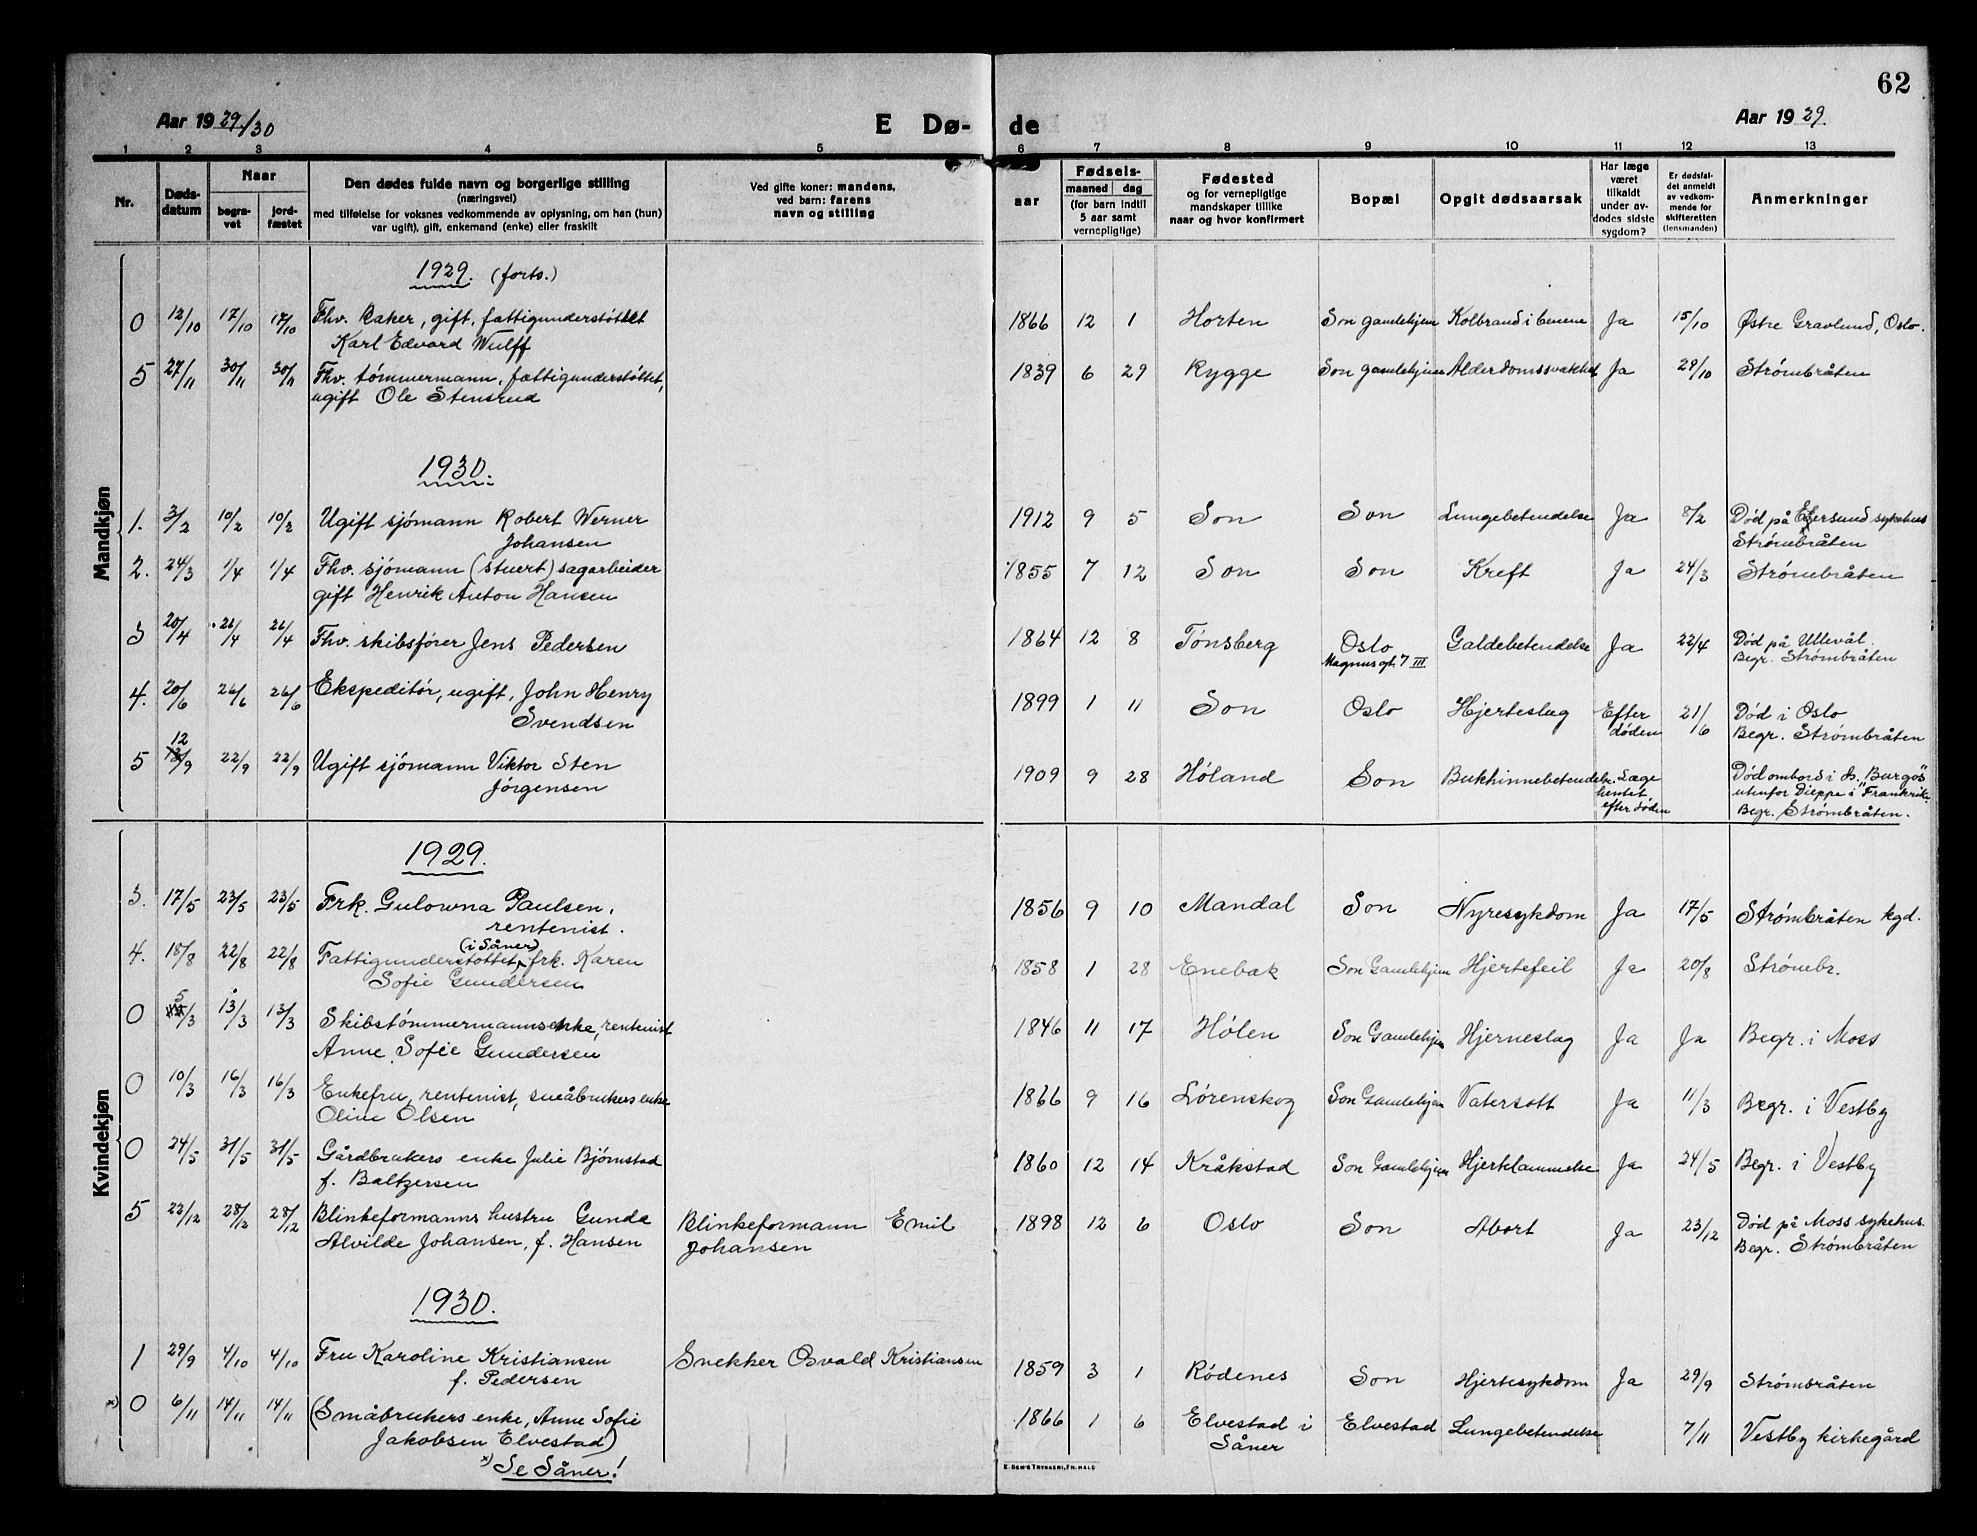 62
Aar 1929/30
E Dø- de
Aar 1929.
1 2 3 4 5 6 7 8 9 10 11 12 13
Nr.
Døds-
datum
Naar
begra-
vet
jord-
fæstet
Den dødes fulde navn og borgerlige stilling
(næringsvei)
med tilføielse for voksnes vedkommende av oplysning, om han (hun)
var ugift), gift, enkemand (enke) eller fraskilt
Ved gifte koner: mandens,
ved barn: farens
navn og stilling
Fødsels-
aar
maaned dag
(for barn indtil
5 aar samt
vernepligtige)
Fødested
og for vernepligtige
mandskaper tillike
naar og hvor konfirmert
Bopæl
Opgit dødsaarsak
Har læge
været
tilkaldt
under av-
dødes sidste
sygdom?
Er dødsfal-
det anmeldt
av vedkom-
mende for
skifteretten
(lensmanden)
Anmerkninger
Mandkjøn
1929. (forts.)
0 12/10 17/10 17/10 Fhv. Baker, gift, fattigunderstøttet 1866 12 1 Horten Son gamlehjem Kolbrand i benene Ja 15/10 Østre Gravlund, Oslo.
Karl Edvard Wulff
5 27/11 30/11 30/11 Fhv. tømmermann, fattigunderstøttet, 1839 6 29 Rygge Son gamlehjem Alderdomssvakhet Ja 29/10 Strømbråten
ugift Ole Stensrud
1930.
1. 3/2 10/2 10/2 Ugift sjømann Robert Werner 1912 9 5 Son Son Lungebetendelse Ja 8/2 Død på Egersund sykehus
Johansen Strømbråten
2. 24/3 1/4 1/4 Fhv. sjømann (stuert) sagarbeider 1855 7 12 Son Son Kreft Ja 24/3 Strømbråten
gift Henrik Anton Hansen
3 20/4 26/4 26/4 Fhv. skibsfører Jens Pedersen 1864 12 8 Tønsberg Oslo Galdebetendelse Ja 22/4 Død på Ullevål.
Magnusgt. 7 III Begr. Strømbråten
4. 20/6 26/6 26/6 Ekspeditør, ugift, John Henry 1899 1 11 Son Oslo Hjerteslag Efter 21/6 Død i Oslo
Svendsen døden Begr. Strømbråten
12
5 13/9 22/9 22/9 Ugift sjømann Viktor Sten 1909 9 28 Høland Son Bukhinnebetendelse. Læge Død ombord i ds. "Burgos"
Jørgensen hentet utenfor Dieppe i Frankrike.
efter døden Begr. Strømbråten.
Kvindekjøn
1929.
3. 17/5 23/5 23/5 Frk. Gulowna Paulsen, 1856 9 10 Mandal Son Nyresykdom Ja 17/5 Strømbråten kgd.
rentenist.
(i Såner)
4. 18/8 22/8 22/8 Fattigunderstøttet frk. Karen 1858 1 28 Enebak Son Gamlehjem Hjertefeil Ja 20/8 Strømbr.
Sofie Gundersen
0 5/3 13/3 13/3 Skibstømmermannsenke, rentenist 1846 11 17 Hølen Son Gamlehjem Hjerneslag Ja Ja Begr. i Moss
Anne Sofie Gundersen
0 10/3 16/3 16/3 Enkefru, rentenist, småbrukers enke 1866 9 16 Lørenskog Son Gamlehjem Vatersott Ja 11/3 Begr. i Vestby
Oline Olsen
0 24/5 31/5 31/5 Gårdbrukers enke Julie Bjørnstad 1860 12 14 Kråkstad Son Gamlehjem Hjerklammelse Ja 24/5 Begr. i Vestby
f. Baltzersen
5 22/12 28/12 28/12 Blinkeformanns hustru Gunda Blinkeformann Emil 1898 12 6 Oslo Son Abort Ja 23/12 Død på Moss sykehus.
Alvilde Johansen, f. Hansen Johansen Begr. Strømbråten
1930.
1 29/9 4/10 4/10 Fru Karoline Kristiansen Snekker Osvald Kristiansen 1859 3 1 Rødenes Son Hjertesykdom Ja 29/9 Strømbråten
f. Pedersen
x) 0 6/11 14/11 14/11 (Småbrukers enke, Anne Sofie 1866 1 6 Elvestad i Elvestad Lungebetendelse 7/11 Vestby kirkegård
Jakobsen Elvestad) Såner
x) Se Såner!
E. SEM'S TRYKKERI, FR.HALD